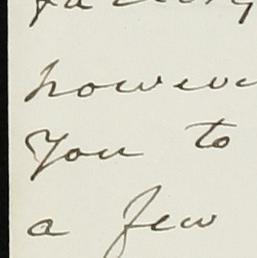 however
You to
a few